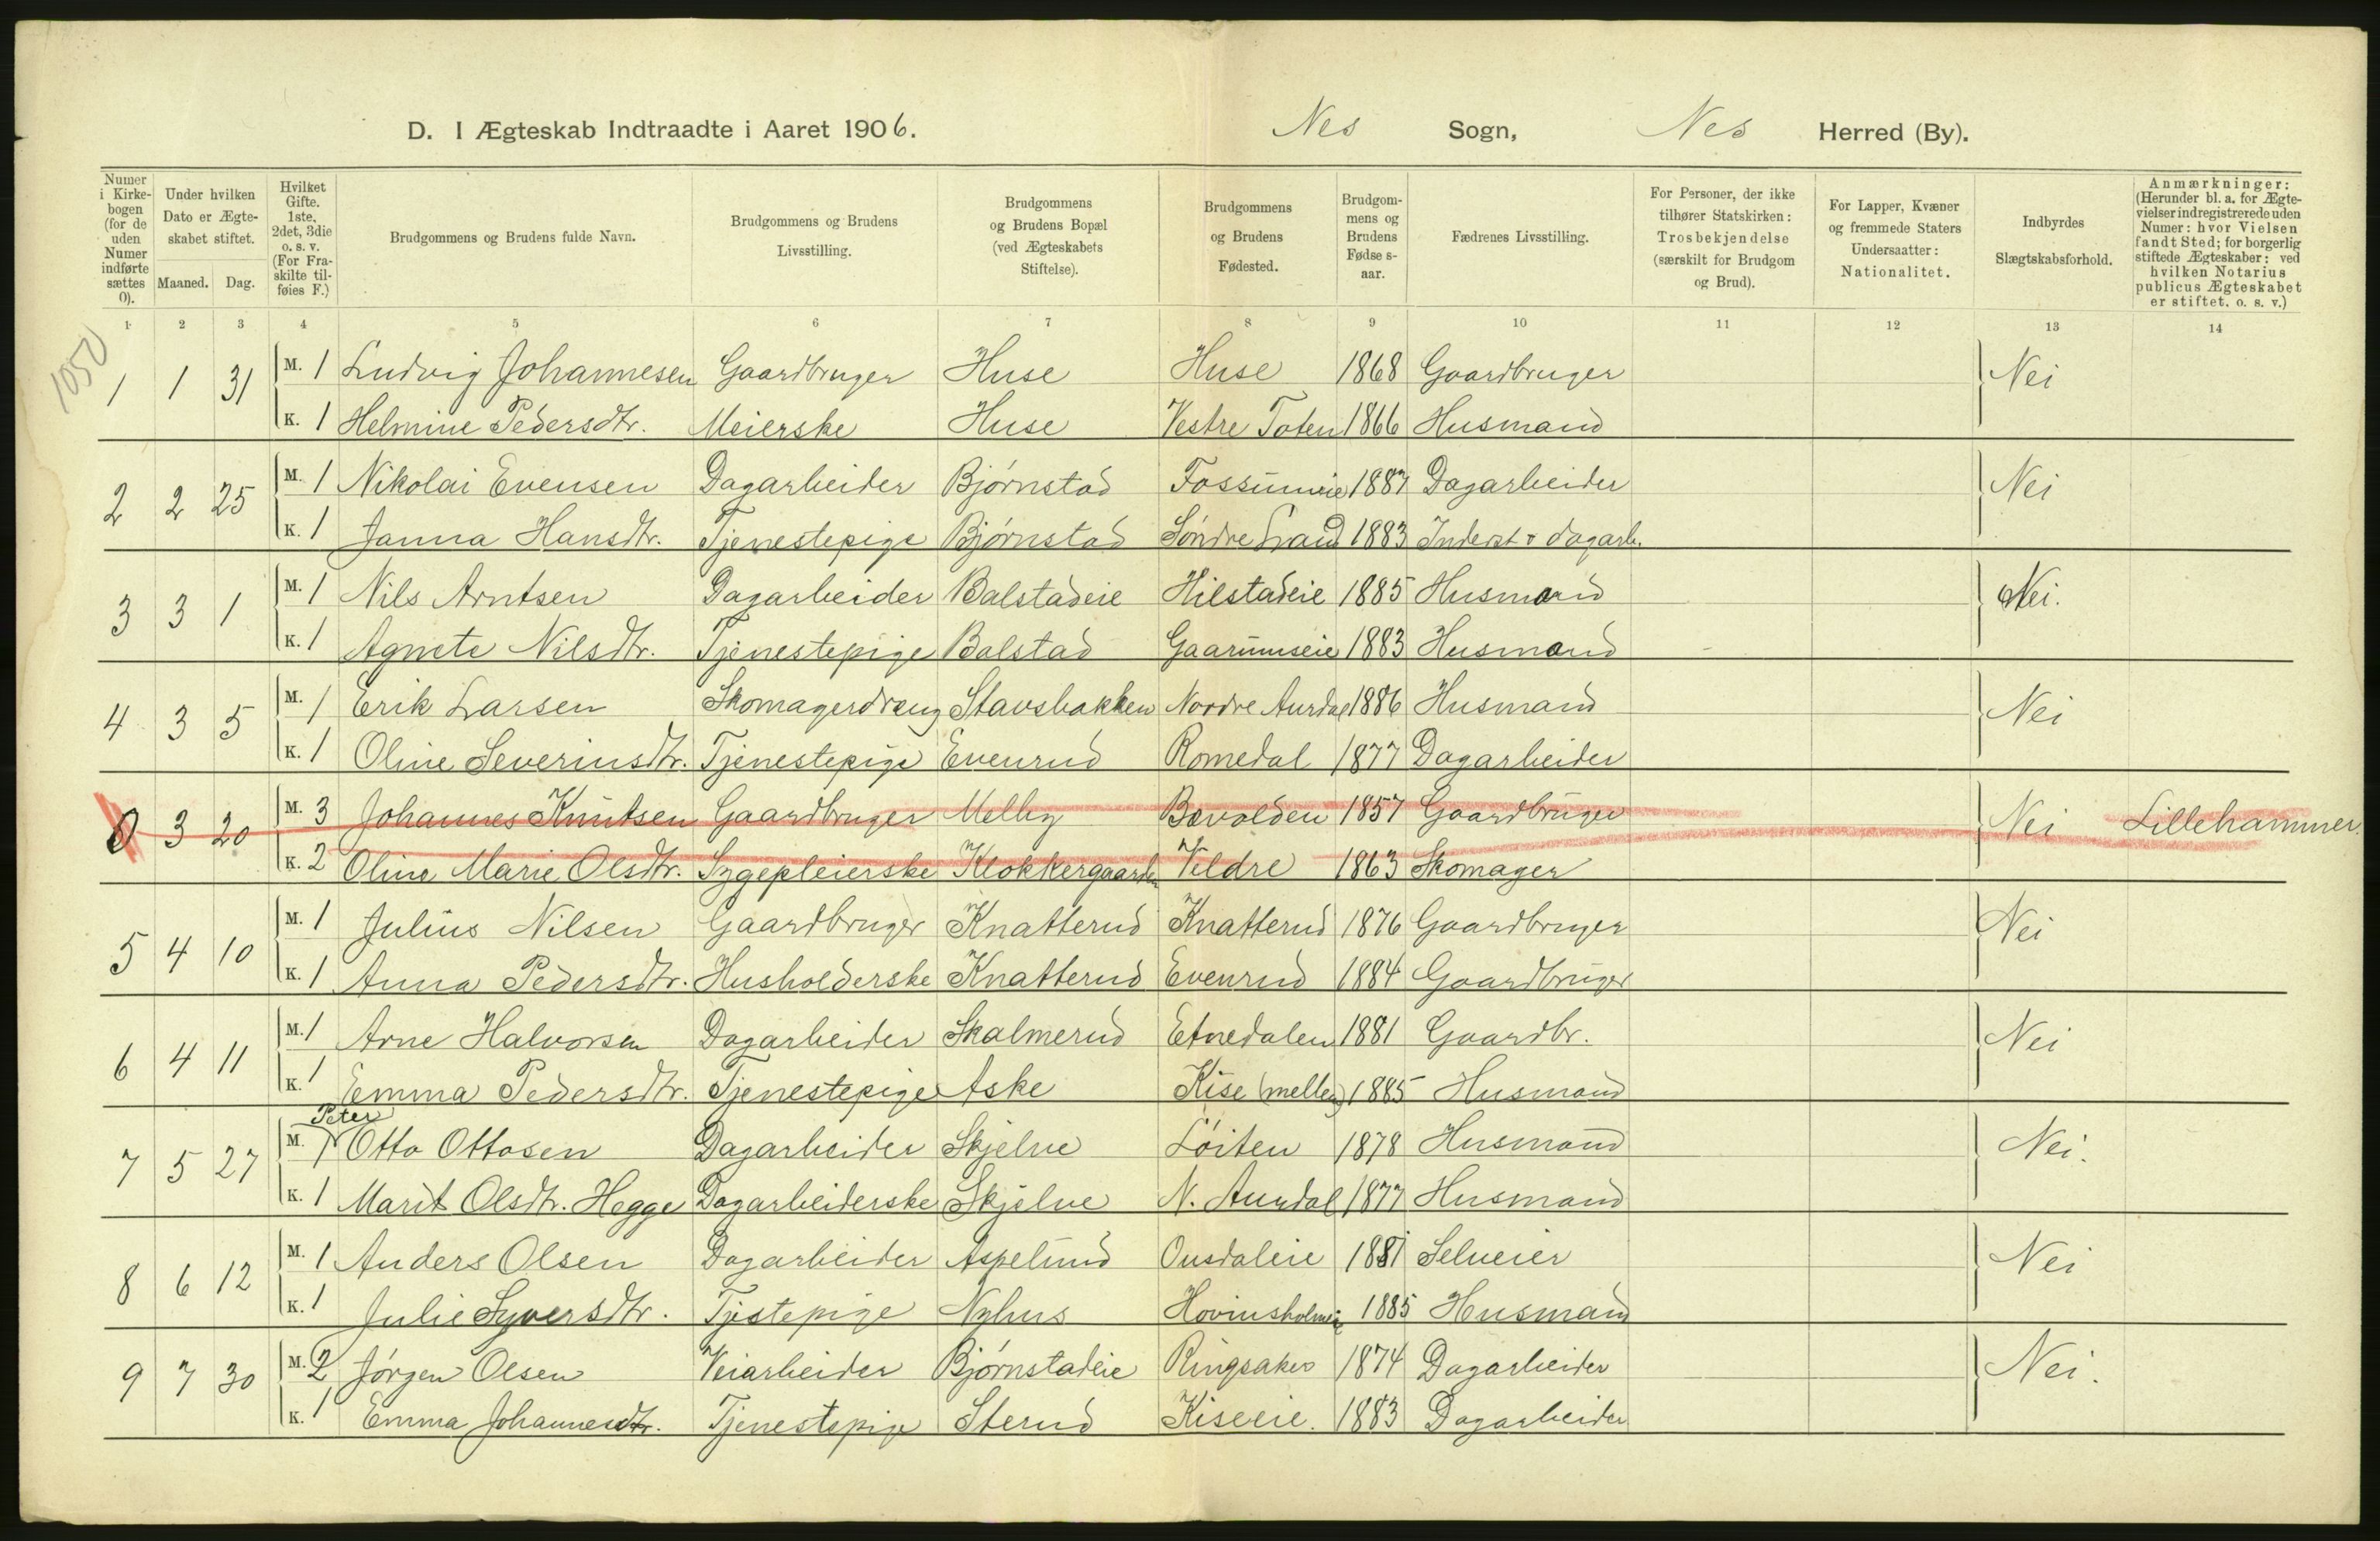 D. I Ægteskab Indtraadte i Aaret 1906. Nes Sogn, Nes Herred (By).
Numer i Kirkebogen (for de uden Numer indførte sættes 0).
Under hvilken Dato er Ægteskabet stiftet.
Maaned. Dag.
Hvilket Gifte. 1ste, 2det, 3die o. s. v. (For Fraskilte tilføies F.)
Brudgommens og Brudens fulde Navn.
Brudgommens og Brudens Livsstilling.
Brudgommens og Brudens Bopæl (ved Ægteskabets Stiftelse).
Brudgommens og Brudens Fødested.
Brudgommens og Brudens Fødselsaar.
Fædrenes Livsstilling.
For Personer, der ikke tilhører Statskirken: Trosbekjendelse (særskilt for Brudgom og Brud).
For Lapper, Kvæner og fremmede Staters Undersaatter: Nationalitet.
Indbyrdes Slægtskabsforhold.
Anmærkninger: (Herunder bl. a. for Ægtevielser indregistrerede uden Numer: hvor Vielsen fandt Sted; for borgerlig stiftede Ægteskaber: ved hvilken Notarius publicus Ægteskabet er stiftet. o. s. v.)
1 2 3 4 5 6 7 8 9 10 11 12 13 14
1050
1 1 31 M. 1 Ludvig Johannesen Gaardbruger Huse Huse 1868 Gaardbruger Nei
K. 1 Helmine Pedersdtr. Meierske Huse Vestre Toten 1866 Husmand
2 2 25 M. 1 Nikolai Evensen Dagarbeider Bjørnstad Fossumeie 1887 Dagarbeider Nei
K. 1 Janna Hansdtr. Tjenestepige Bjørnstad Søndre Land 1883 Inderst & dagarb.
3 3 1 M. 1 Nils Arntsen Dagarbeider Balstadeie Hilstadeie 1885 Husmand Nei.
K. 1 Agnete Nilsdtr. Tjenestepige Balstad Gaarumseie 1883 Husmand
4 3 5 M. 1 Erik Larsen Skomagerdreng Stavsbakken Nordre Aurdal 1886 Husmand Nei
K. 1 Oline Severinsdtr. Tjenestepige Evenrud Romedal 1877 Dagarbeider
0 3 20 M. 3 Johannes Knutsen Gaardbruger Melby 1857 Gaardbruger Nei Lillehammer.
K. 2 Oline Marie Olsdtr. Sygepleierske Klokkergaarden Veldre 1863 Skomager
5 4 10 M. 1 Julius Nilsen Gaardbruger Knatterud Knatterud 1876 Gaardbruger Nei
K. 1 Anna Pedersdtr. Husholderske Knatterud Evenrud 1884 Gaardbruger
6 4 11 M. 1 Arne Halvorsen Dagarbeider Skalmerud Etnedalen 1881 Gaardbr. Nei
K. 1 Emma Pedersdtr. Tjenestepige Aske Kise (mellem) 1885 Husmand
Peter
7 5 27 M. 1 Otto Ottosen Dagarbeider Skjelve Løiten 1878 Husmand Nei.
K. 1 Marit Olsdtr. Hegge Dagarbeiderske Skjelve N. Aurdal 1877 Husmand
8 6 12 M. 1 Anders Olsen Dagarbeider Aspelund Ousdaleie 1881 Selveier Nei
K. 1 Julie Syversdtr. Tjestepige Nyhus Hovinsholmeie 1885 Husmand
9 7 30 M. 2 Jørgen Olsen Veiarbeider Bjørnstadeie Ringsaker 1874 Dagarbeider Nei.
K. 1 Emma Johannesdtr. Tjenestepige Sterud Kiseeie. 1883 Dagarbeider